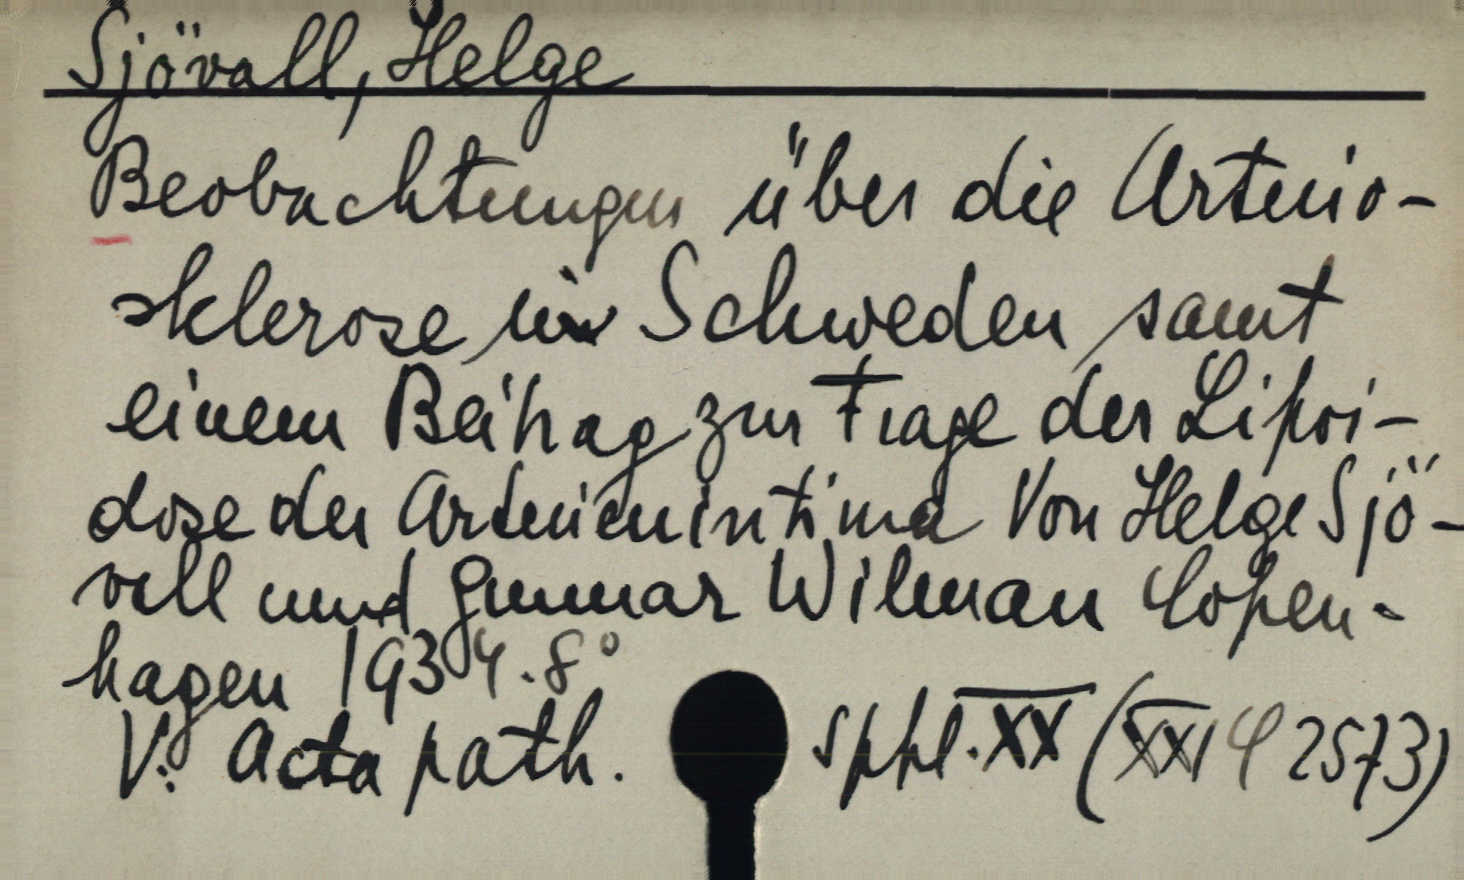 Sjövall, Helge
Beobachtungen über die Arterio-
sklerose in Schweden samt
einem Beitrag zur Frage der Lipoi-
dose der Arterienintima Von Helge Sjö-
vall und Gunnar Wilman Copen-
hagen 1934. 8°
V: Acta path. Sppl. XX (XXI φ 2573)